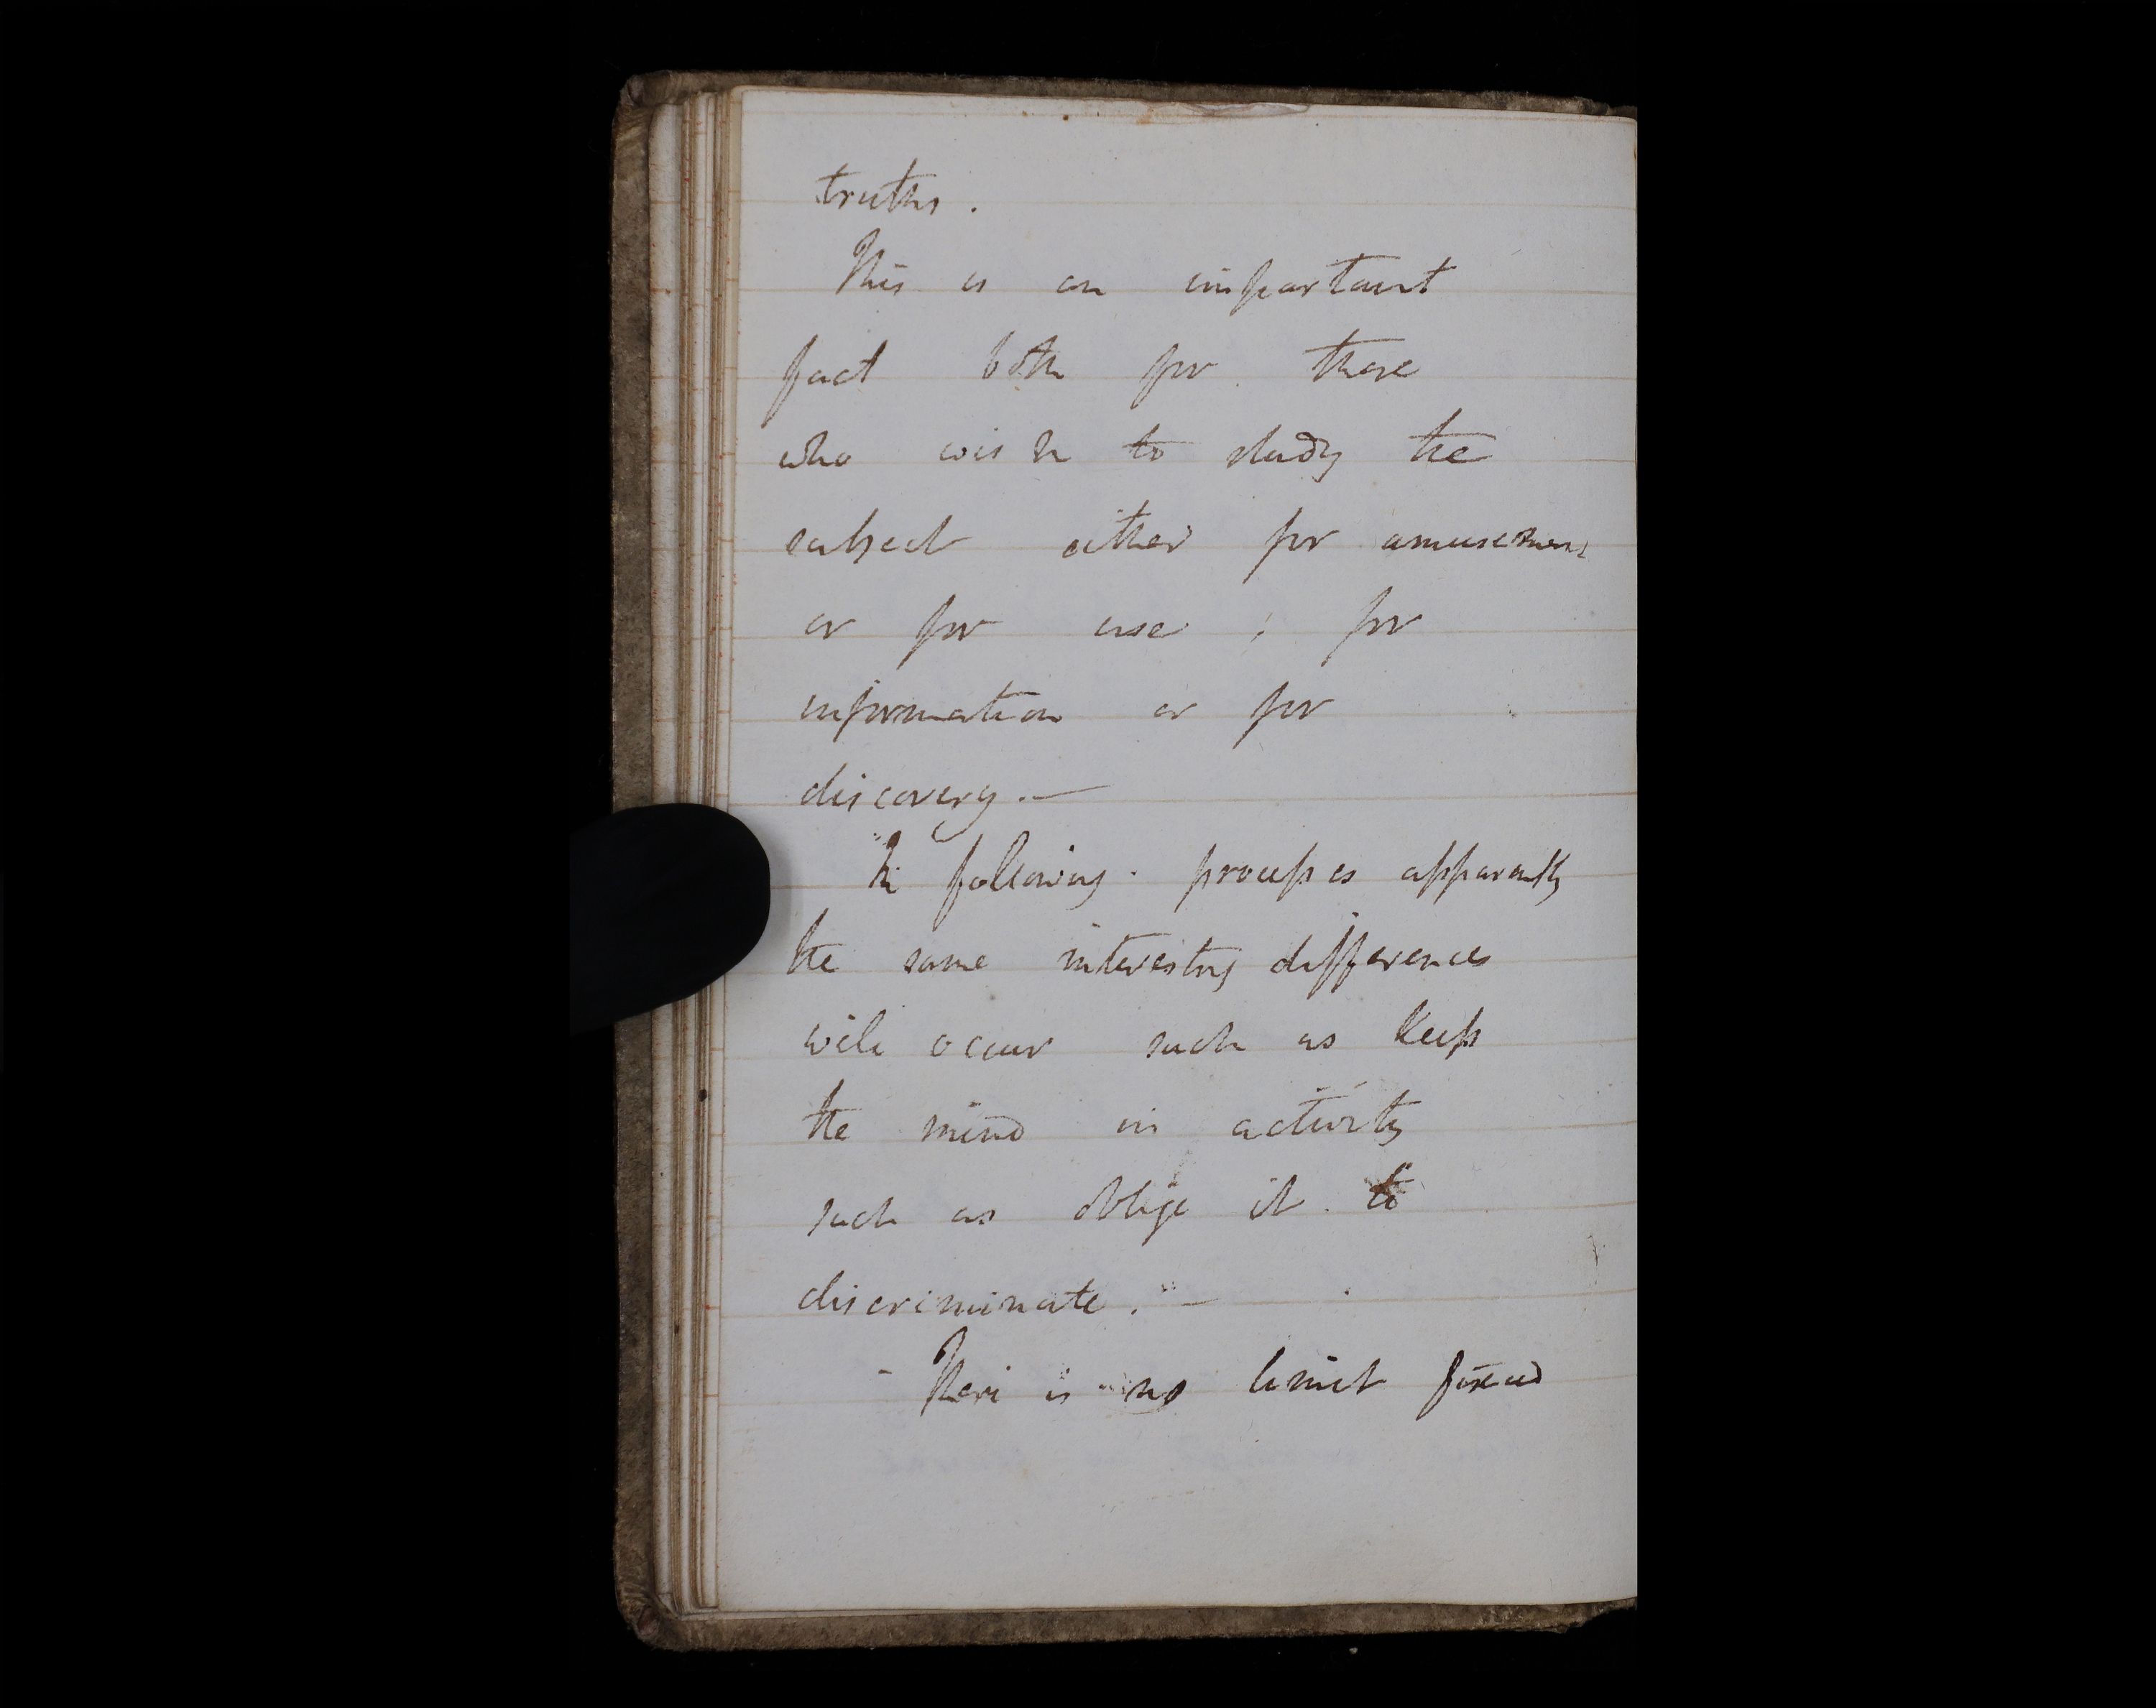 truths.
This is an important
fact both for those
who wish to study the
subject either for amusement
or for use; for
information or for
discovery.—
In following processes apparently
the same interesting differences
will occur such as keep
the mind in activity
such as oblige it to
discriminate.—
- There is no limit fixed